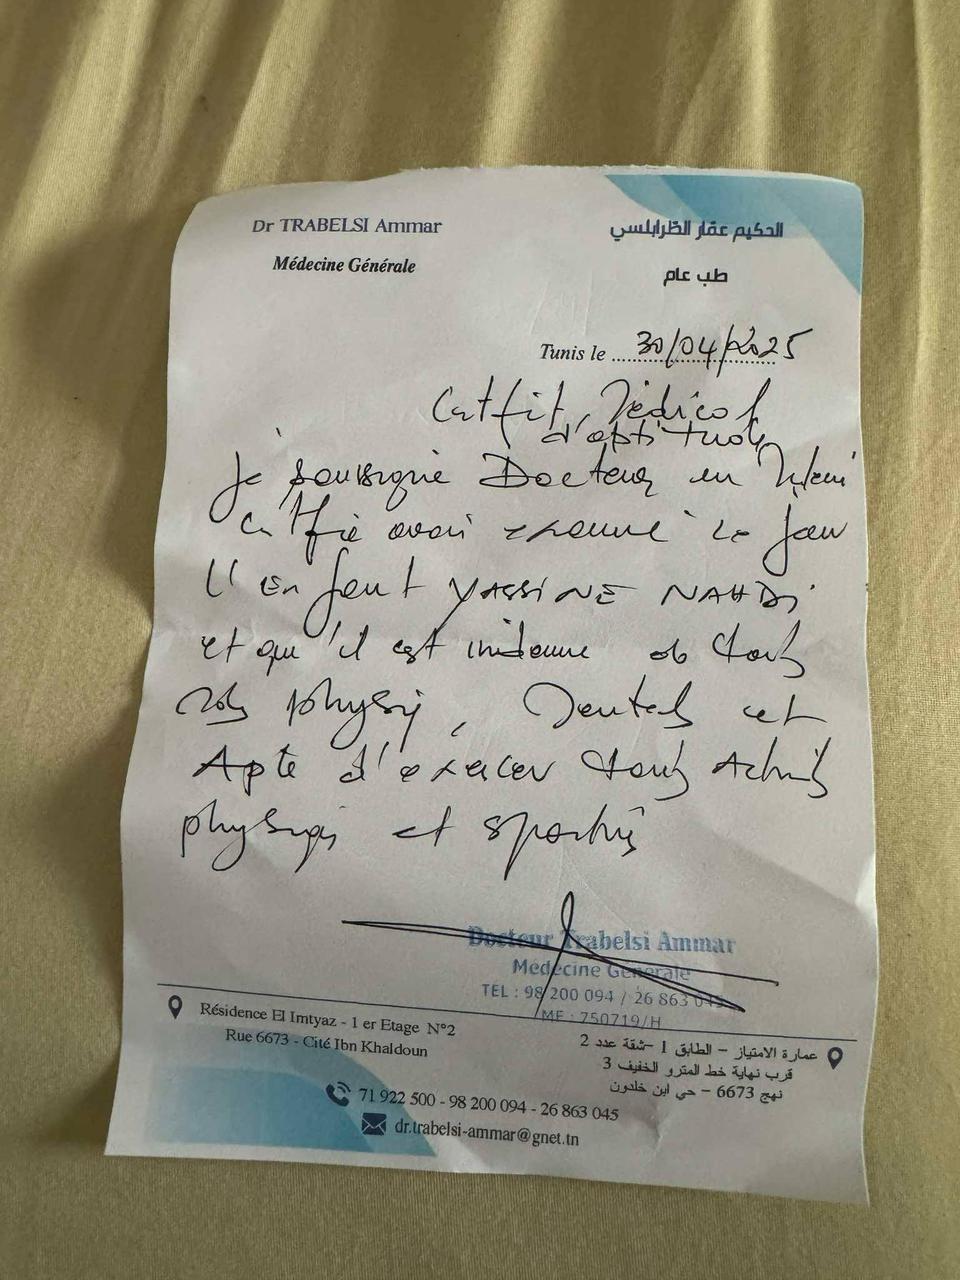 Dr TRABELSI Ammar
Médecine Générale
الحكيم عمّار الطرابلسي
طب عام
Tunis le 30/04/2025
Certfit Médical
d'aptitude
Je soussigné Docteur en
certifie avoir examiné ce jour
l'enfant YASSINE NAHDI
et qu'il est indemne de touts
physiq, Mentals et
Apte d'exercer touts Activits
physiqs et sportivs
Docteur Trabelsi Ammar
Médecine Générale
TEL : 98 200 094 / 26 863 045
MF : 750719/H
Résidence El Imtyaz - 1 er Etage N°2
Rue 6673 - Cité Ibn Khaldoun
عمارة الامتياز – الطابق 1 –شقة عدد 2
قرب نهاية خط المترو الخفيف 3
نهج 6673 – حي ابن خلدون
71 922 500 - 98 200 094 - 26 863 045
dr.trabelsi-ammar@gnet.tn